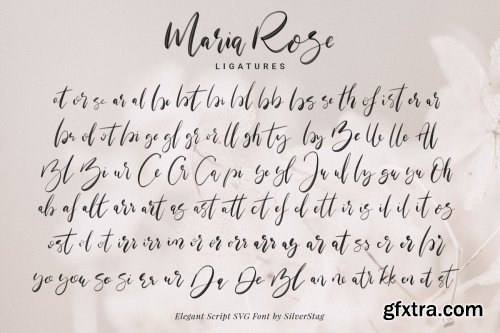 Maria Rose
LIGATURES
ot or se ar al be bt bi bl bb bs se th of ist er ar
br ol vt bi ge gl gr or ll gh ty by Be Ue lle Al
Bl Bi ur Ce Cr Ca pi ye yl Ju ul ly ga yu Oh
ab af alt arr art as ast att ct ef el ett ir is il it os
ost ol ot irr irr im or er orr arr ay ar at ss er er br
yo you so si sr ur Da De Bl an ne atr kk en et st
Elegant Script SVG Font by SilverStag
gfxtra.com